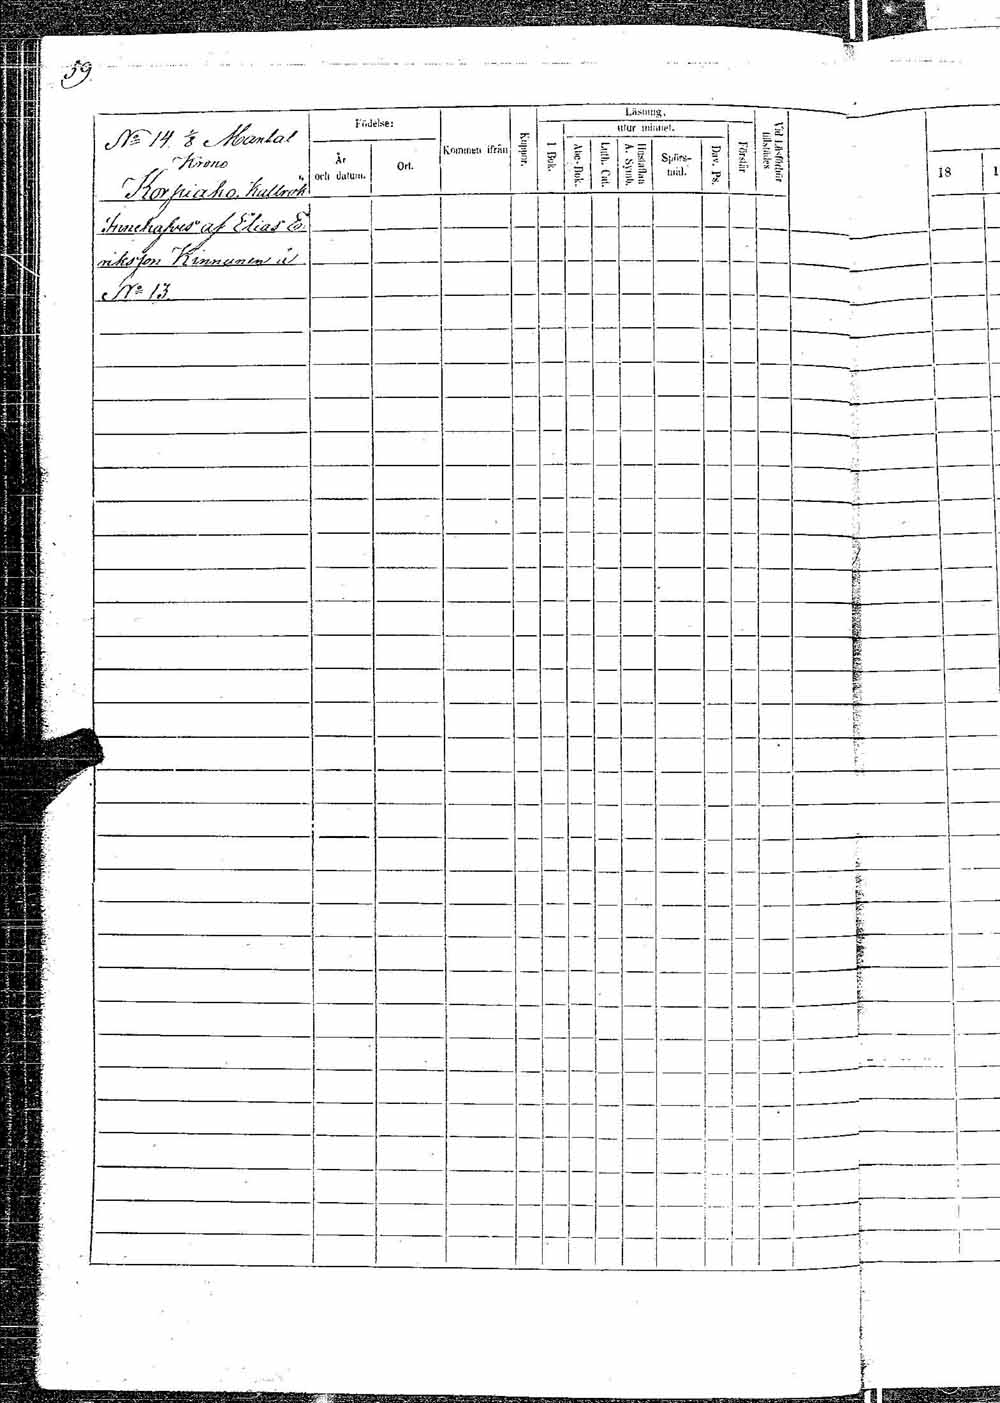 59
Läsning.
Födelse:
utur minnet.
År och datum.
Ort.
Kommen ifrån
Koppor.
I Bok.
Abc-Bok.
Luth. Cat.
Hustaflan A. Symb.
Spörs-mål.
Dav. Ps.
Förstår
Vid Läsförhör tillstädes
18
1
No 14. 1/8 Mantal
Krono
Korpiaho,
Innehafves af Elias E-
riksson Kinnunen å
No 13.